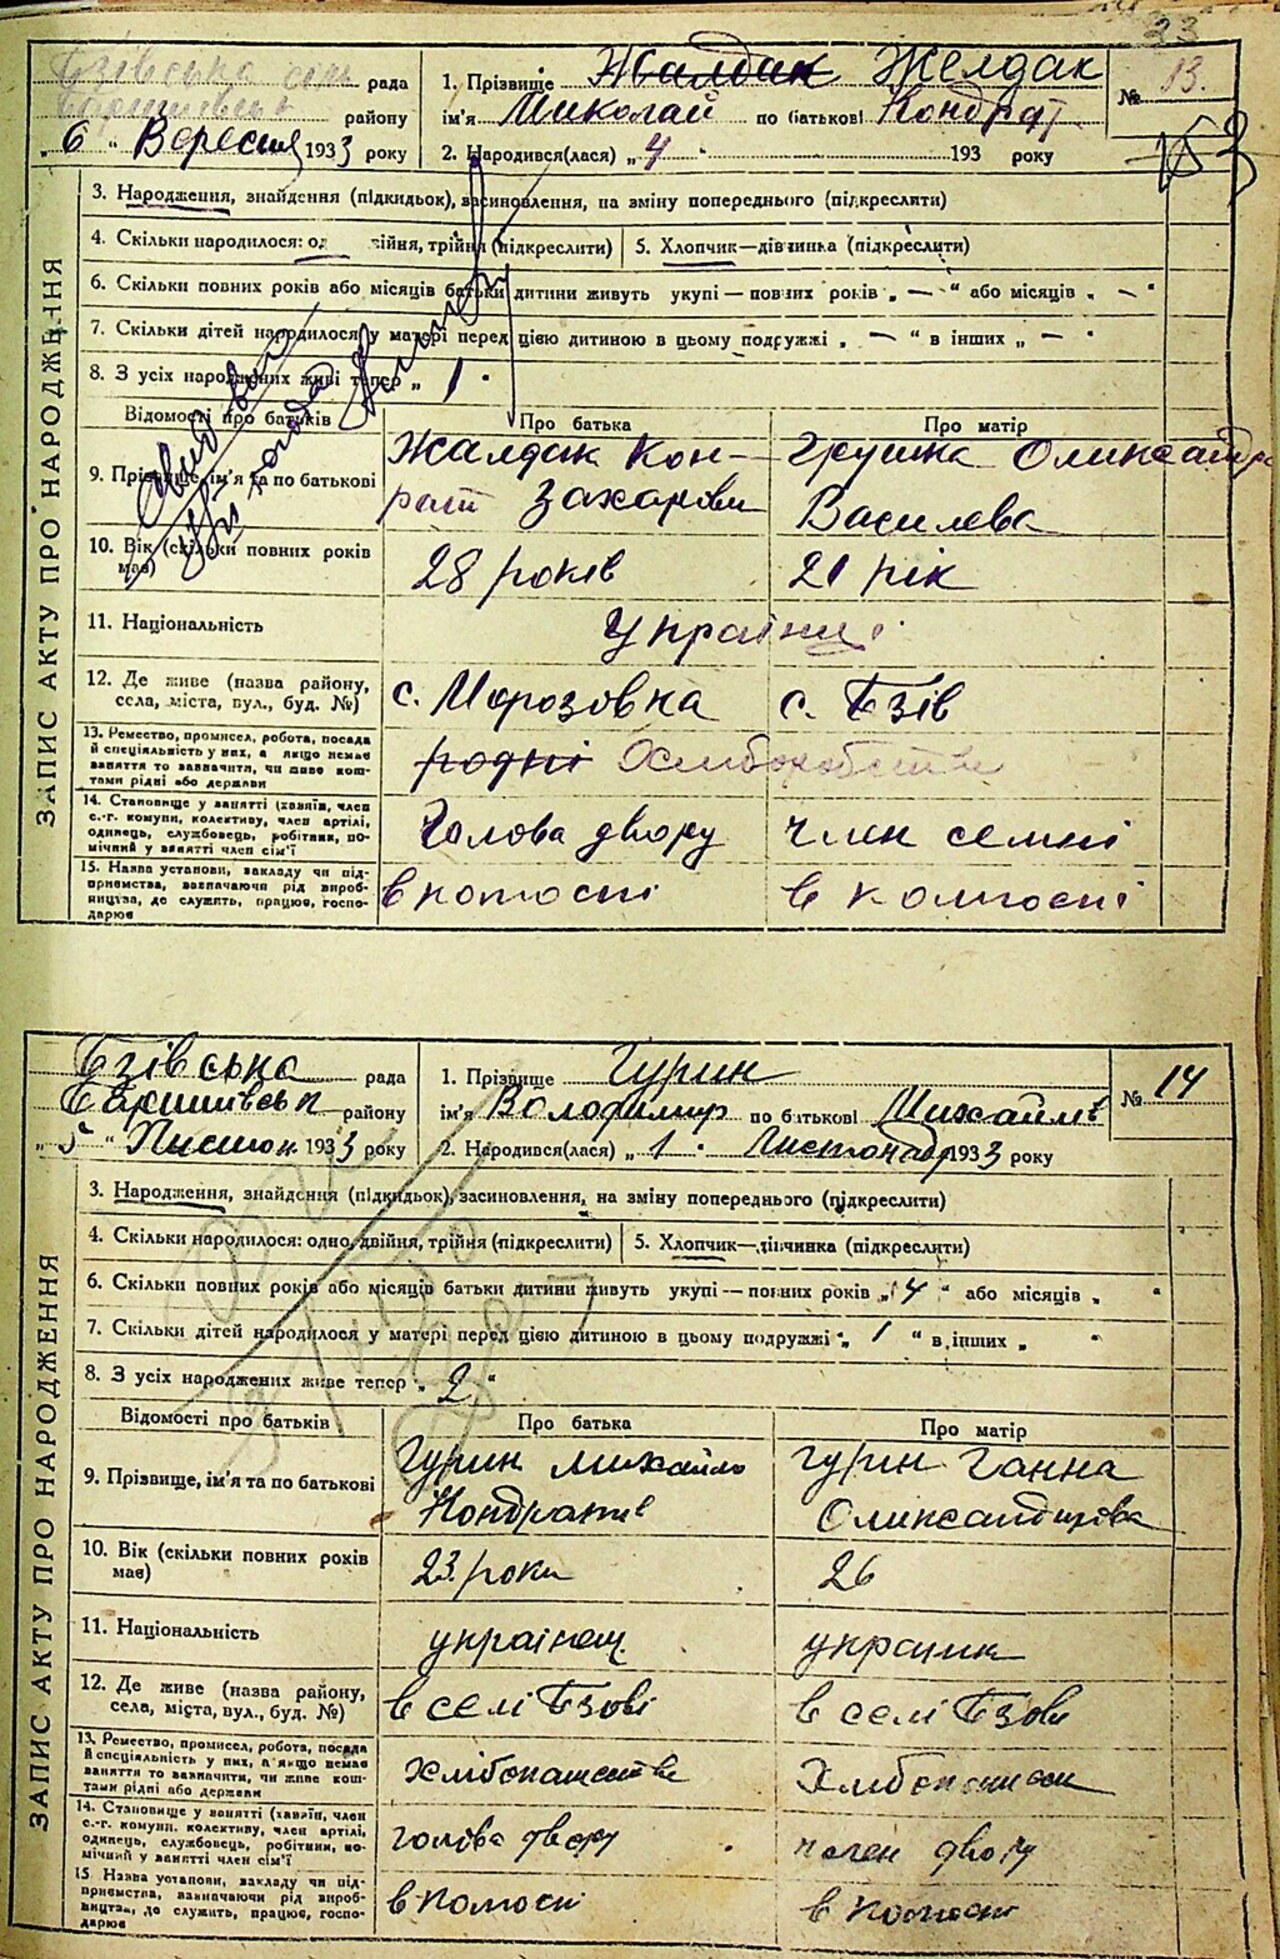 23
Бзівська сіль рада
1. Прізвище Жалдак Желдак
№ 13.
району
ім'я Миколай по батькові Кондрат
„ 6 " Вересня 1933 року
2. Народився(лася) „ 4 " 193 року
153
ЗАПИС АКТУ ПРО НАРОДЖЕННЯ
3. Народження, знайдення (підкидьок), засиновлення, на зміну попереднього (підкреслити)
4. Скільки народилося: од війня, трійня (підкреслити) 5. Хлопчик—дівчинка (підкреслити)
6. Скільки повних років або місяців батьки дитини живуть укупі — повних років „ — " або місяців „ — "
7. Скільки дітей народилося у матері перед цією дитиною в цьому подружжі „ — " в інших „ — "
8. З усіх народжених живі тепер „ 1 "
Відомості про батьків
Про батька
Про матір
9. Прізвище, ім'я та по батькові
Жалдак Кон-
рат Захарови
Грушка Олександра
Василева
10. Вік (скільки повних років має)
28 років
21 рік
11. Національність
Українці
12. Де живе (назва району,
села, міста, вул., буд. №)
с. Морозовка
с. Бзів
13. Ремество, промисел, робота, посада
й спеціяльність у них, а якщо немає
заняття то зазначити, чи живе кош-
тами рідні або держави
родні
14. Становище у занятті (хазяїн, член
с.-г. комуни, колективу, член артілі,
одинець, службовець, робітник, по-
мічний у занятті член сім'ї
Голова двору
член семні
15. Назва установи, закладу чи під-
приємства, зазначаючи рід вироб-
ництва, де служить, працює, госпо-
дарює
в колоспі
в колгоспі
Бзівська рада
1. Прізвище Гурин
№ 14
району
ім'я Володимир по батькові Михайлів
„ 5 " Листоп 1933 року
2. Народився(лася) „ 1 " Листопад 1933 року
ЗАПИС АКТУ ПРО НАРОДЖЕННЯ
3. Народження, знайдення (підкидьок), засиновлення, на зміну попереднього (підкреслити)
4. Скільки народилося: одно, двійня, трійня (підкреслити) 5. Хлопчик—дівчинка (підкреслити)
6. Скільки повних років або місяців батьки дитини живуть укупі — повних років „ 4 " або місяців „ "
7. Скільки дітей народилося у матері перед цією дитиною в цьому подружжі „ 1 " в інших „ "
8. З усіх народжених живе тепер „ 2 "
Відомості про батьків
Про батька
Про матір
9. Прізвище, ім'я та по батькові
Гурин Михайло
Кондратів
Гурин Ганна
Олександрова
10. Вік (скільки повних років
має)
23 роки
26
11. Національність
українец
12. Де живе (назва району,
села, міста, вул., буд. №)
в селі Бзові
в селі Бзові
13. Ремество, промисел, робота, посада
й спеціяльність у них, а якщо немає
заняття то зазначити, чи живе кош-
тами рідні або держави
14. Становище у занятті (хазяїн, член
с.-г. комуни, колективу, член артілі,
одинець, службовець, робітник, по-
мічний у занятті член сім'ї
голова двору
член двору
15. Назва установи, закладу чи під-
приємства, зазначаючи рід вироб-
ництва, де служить, працює, госпо-
дарює